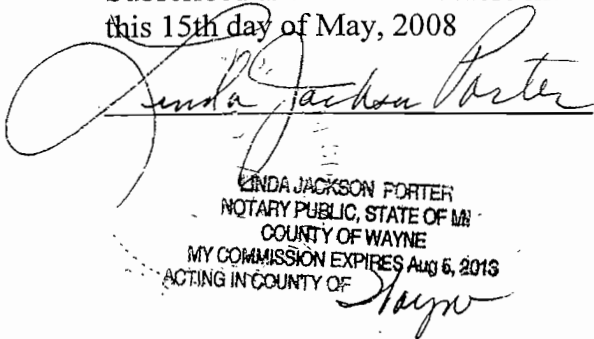 this 15th day of May, 2008
Linda Jackson Porter
LINDA JACKSON PORTER
NOTARY PUBLIC, STATE OF MI
COUNTY OF WAYNE
MY COMMISSION EXPIRES Aug 5, 2013
ACTING IN COUNTY OF Wayne